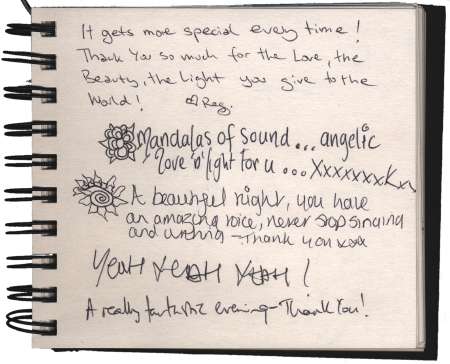 It gets more special every time!
Thank You so much for the Love, the
Beauty, the Light you give to the
World! ♡ Reg.
Mandalas of Sound... angelic
love 'n' light for u ... Xxxxxxx
A beautiful night, you have
an amazing voice, never stop singing
and writing - Thank you xxx
Yeah Yeah Yeah!
A really fantastic evening - Thank You!